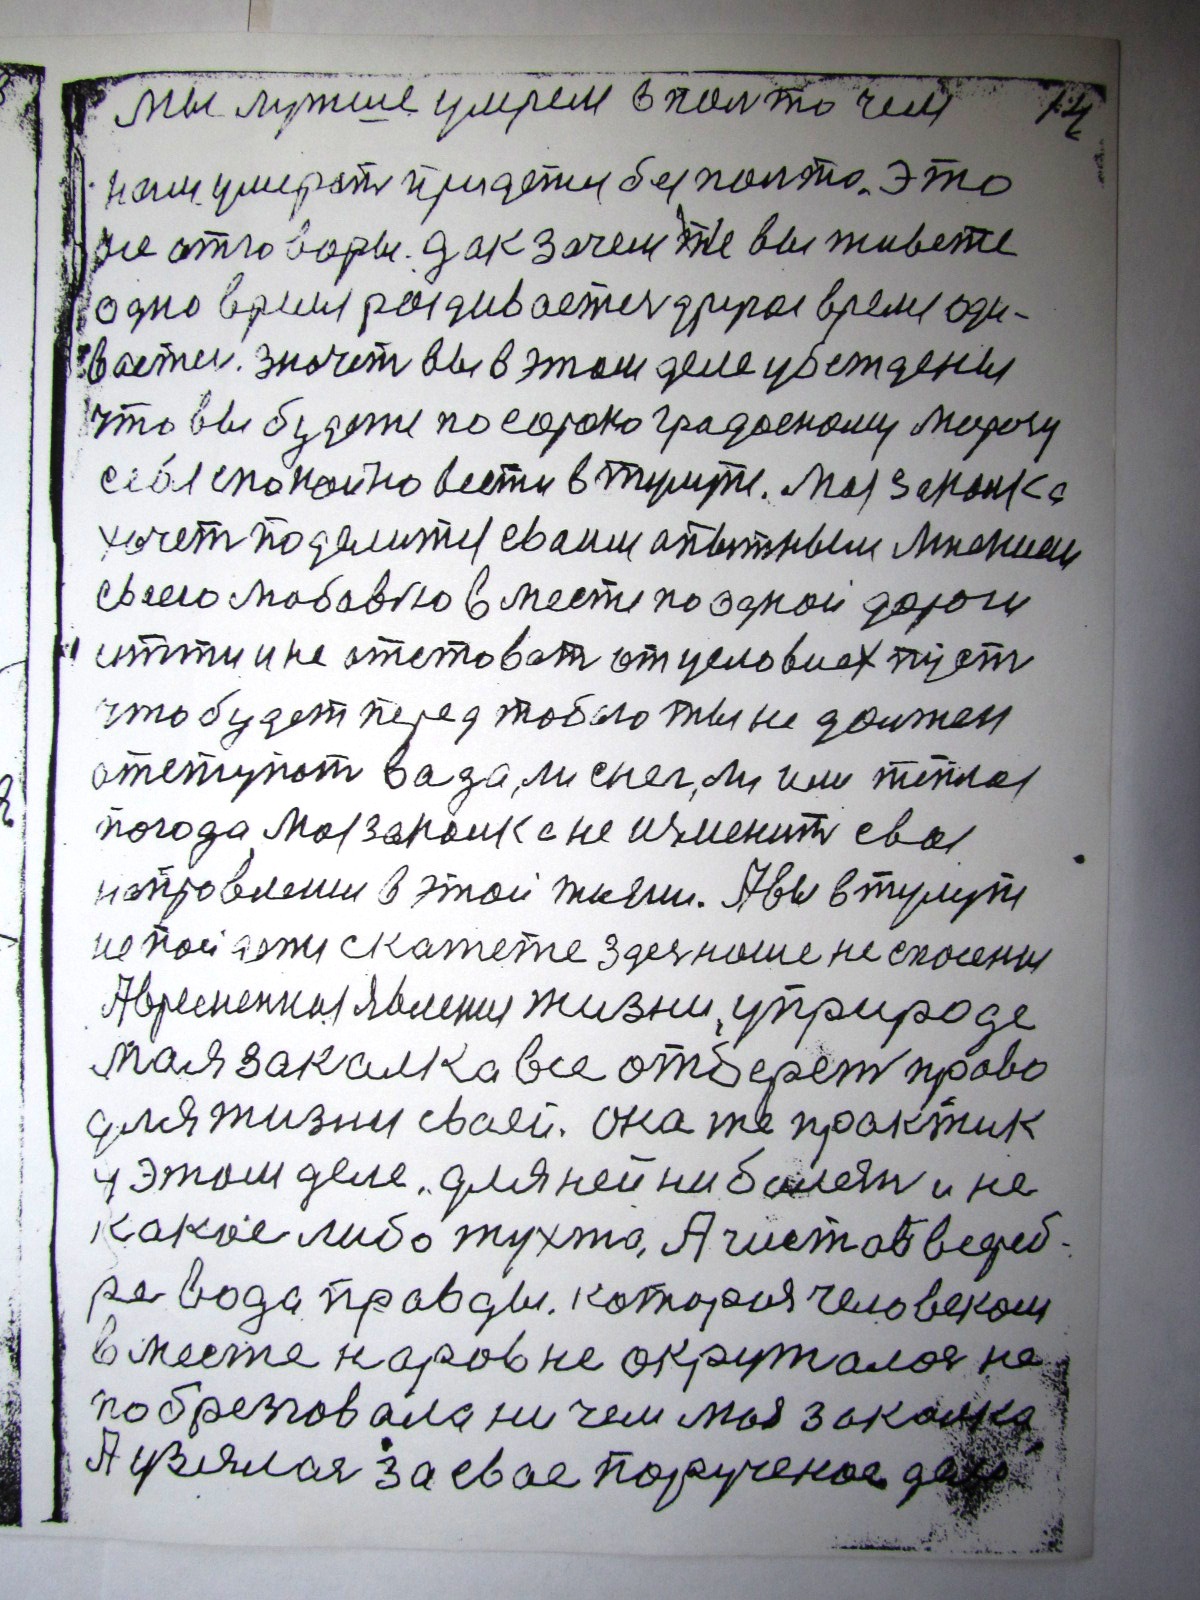 мы лутше умрем в полто чем 14
нам умерать придетця без полто. Это
не отговоры. Дак зачем же вы живете
одно время раздиваетея другое время оди-
ваетея. Значет вы в этом деле убеждены
что вы будете по сорокоградосному морозу
себя спокойно вести в тулупе. Моя закалка
хочет поделится сваим опытным мнением
своею любовію вместе по одной дороги
итти и не отстоват от условиях пусть
что будет перед тобою ты не должен
отступат вада, ли снег, ли или тёплая
погода моя закалка не изменит свои
направлении в этой жизни. А вы в тулупи
не пойдете скажете здея наше не спасения
А временная явления жизни, у природе
Моя закалка все отберет право
для жизни своей. Она же практик
у этом деле. для ней ни болезт и не
какое либо тухта, А чистая в вереб-
ре вода правды. Которая человеком
вместе наровне окружалоя не
побрезговала ни чем моя закалка
А узялоя за свае порученое дело